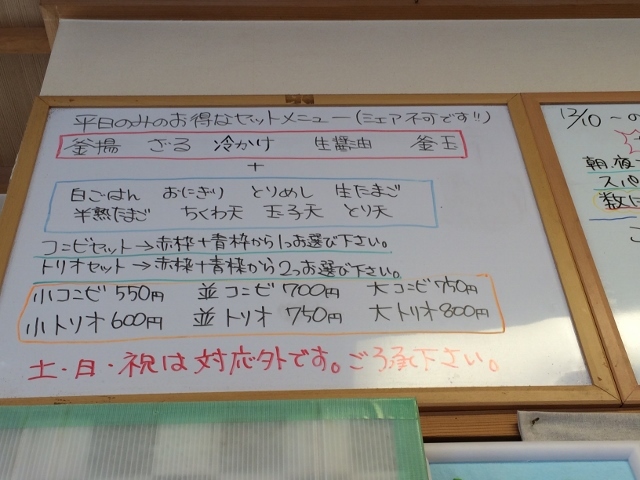 平日のみのお得なセットメニュー(シェア不可です!!)
釜揚 ざる 冷かけ 生醤油 釜玉
+
白ごはん おにぎり とりめし 生たまご
半熟たまご ちくわ天 玉子天 とり天
コンビセット→赤枠+青枠から1つお選び下さい。
トリオセット→赤枠+青枠から2つお選び下さい。
小コンビ 550円 並コンビ 700円 大コンビ 750円
小トリオ 600円 並トリオ 750円 大トリオ 800円
土・日・祝は対応外です。ご了承下さい。
12/10~の
朝、夜
スパ
数に